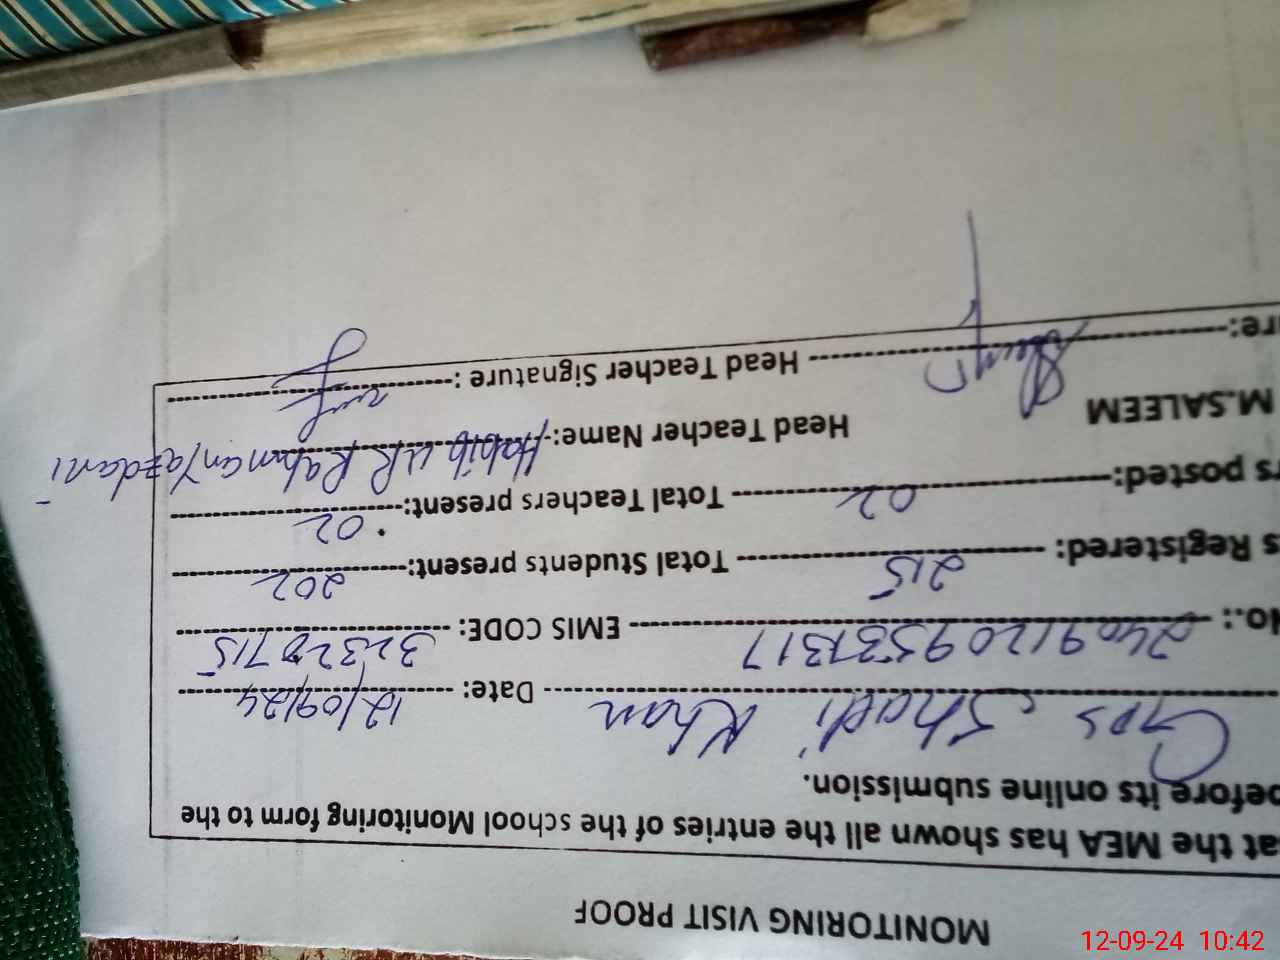 MONITORING VISIT PROOF
at the MEA has shown all the entries of the school Monitoring form to the
before its online submission.
GPS Shadi Khan Date: 12/09/24
No.: EMIS CODE: 32320715
s Registered: 215 Total Students present: 202
rs posted: 02 Total Teachers present: 02
M.SALEEM Head Teacher Name: Habib ur Rahman Yazdani
re: Head Teacher Signature :
12-09-24 10:42